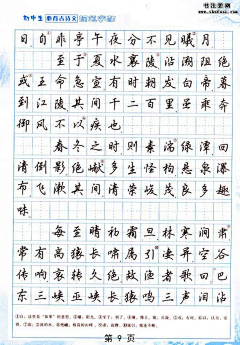 初中生 必背古诗文
日自非亭午夜分不见曦月
至于夏水襄陵沿溯阻绝
或王命急宣有时朝发白帝暮
到江陵其间千二百里虽乘奔
御风不以疾也
春冬之时则素湍绿潭回
清倒影绝巘多生怪柏悬泉瀑
布飞漱其间清荣峻茂良多趣
味
每至晴初霜旦林寒涧肃
常有高猿长啸属引凄异空谷
传响哀转久绝故渔者歌曰巴
东三峡巫峡长猿鸣三声泪沾
第 9 页